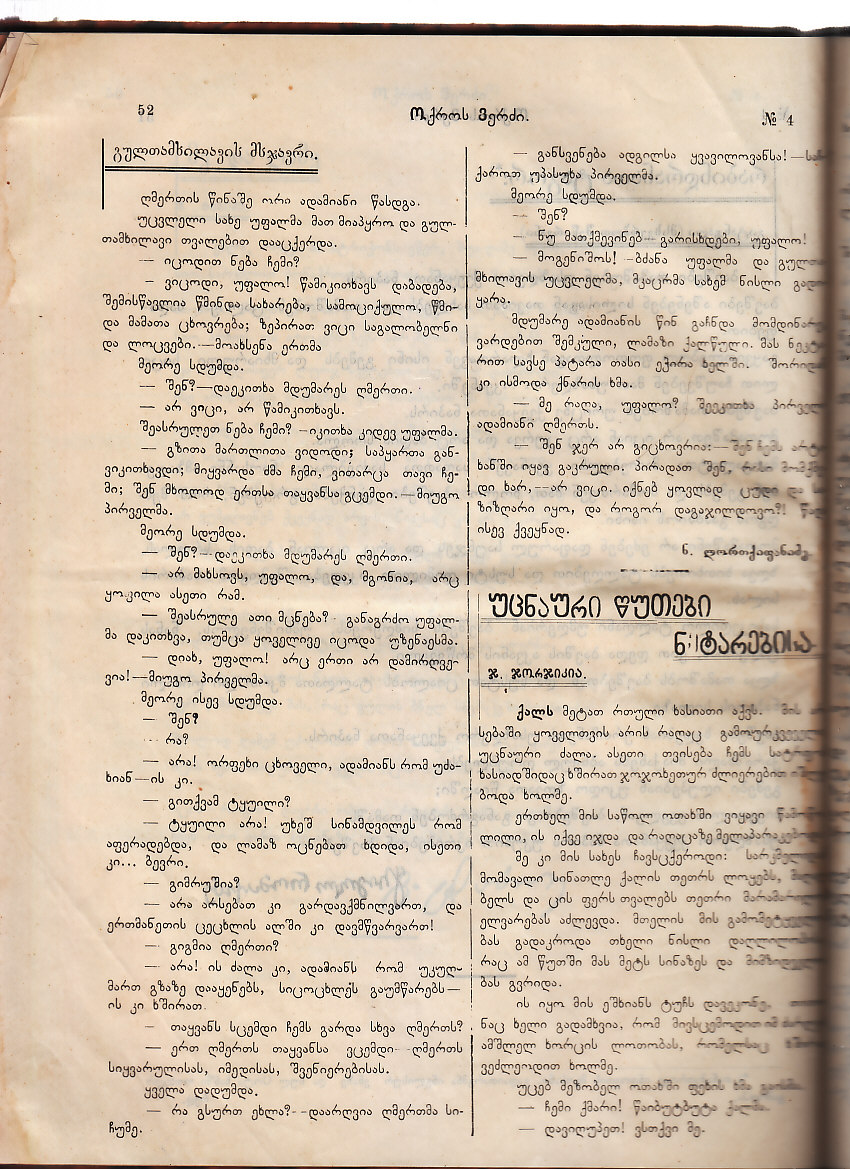 52
ოქროს ვერძი.
№ 4
გულთამხილავის მსჯავრი.
ღმერთის წინაშე ორი ადამიანი წასდგა.
უცვლელი სახე უფალმა მათ მიაპყრო და გულ-
თამხილავი თვალებით დააცქერდა.
— იცოდით ნება ჩემი?
— ვიცოდი, უფალო! წამიკითხავს დაბადება,
შემისწავლია წმინდა სახარება, სამოციქულო, წმი-
და მამათა ცხოვრება; ზეპირათ ვიცი საგალობელნი
და ლოცვები.—მოახსენა ერთმა
მეორე სდუმდა.
— შენ?—დაეკითხა მდუმარეს ღმერთი.
— არ ვიცი, არ წამიკითხავს.
შეასრულეთ ნება ჩემი? –იკითხა კიდევ უფალმა.
— გზითა მართლითა ვიდოდი; საპყართა გან-
ვიკითხავდი; მიყვარდა ძმა ჩემი, ვითარცა თავი ჩე-
მი; შენ მხოლოდ ერთსა თაყვანსა გცემდი.—მიუგო
პირველმა.
მეორე სდუმდა.
— შენ?—დაეკითხა მდუმარეს ღმერთი.
— არ მახსოვს, უფალო, და, მგონია, არც
ყოფილა ასეთი რამ.
— შეასრულე ათი მცნება? განაგრძო უფალ-
მა დაკითხვა, თუმცა ყოველივე იცოდა უზენაესმა.
— დიახ, უფალო! არც ერთი არ დამირღვე-
ვია!—მიუგო პირველმა.
მეორე ისევ სდუმდა.
— შენ?
— რა?
— არა! ორფეხი ცხოველი, ადამიანს რომ უძა-
ხიან—ის კი.
— გითქვამ ტყუილი?
— ტყუილი არა! უხეშ სინამდვილეს რომ
აფერადებდა, და ლამაზ ოცნებათ ხდიდა, ისეთი
კი... ბევრი.
— გიმრუშია?
— არა არსებათ კი გარდავქმნილვართ, და
ერთმანეთის ცეცხლის ალში კი დავმწვარვართ!
— გიგმია ღმერთი?
— არა! ის ძალა კი, ადამიანს რომ უკუღ-
მართ გზაზე დააყენებს, სიცოცხლეს გაუმწარებს—
ის კი ხშირათ.
– თაყვანს სცემდი ჩემს გარდა სხვა ღმერთს?
— ერთ ღმერთს თაყვანსა ვცემდი—ღმერთს
სიყვარულისას, იმედისას, შვენიერებისას.
ყველა დადუმდა.
— რა გსურთ ეხლა?--დაარღვია ღმერთმა სი-
ჩუმე.
— განსვენება ადგილსა ყვავილოვანსა!—
ქაროთ უპასუხა პირველმა.
მეორე სდუმდა.
— შენ?
— ნუ მათქმევინებ—გარისხდები, უფალო!
— მოგენიშოს! –ბძანა უფალმა და
მხილავის უცვლელმა, მკაცრმა სახემ ნისლი
ყარა.
მდუმარე ადამიანის წინ გაჩნდა
ვარდებით შემკული, ლამაზი ქალწული. მას
რით სავსე პატარა თასი ეჭირა ხელში.
კი ისმოდა ქნარის ხმა.
— მე რაღა, უფალო? შეეკითხა
ადამიანი ღმერთს.
— შენ ჯერ არ გიცხოვრია:— შენ ჩემს
ხანში იყავ გაკრული. პირადათ შენ,
დი ხარ,--არ ვიცი. იქნებ ყოვლად ცუდი და
ზიზღარი იყო, და როგორ დაგაჯილდოვო?!
ისევ ქვეყნად.
ნ. ლორთქიფანიძე
უცნაური წუთები
ნეტარებისა
ჯ. ჯორჯიკია.
ქალს მეტათ რთული ხასიათი აქვს.
სებაში ყოველთვის არის რაღაც
უცნაური ძალა. ასეთი თვისება ჩემს
ხასიადშიდაც ხშირათ ჯოჯოხეთურ ძლიერებით
ბოდა ხოლმე.
ერთხელ მის საწოლ ოთახში ვიყავი
ლილი, ის იქვე იჯდა და რაღაცაზე
მე კი მის სახეს ჩავსცქეროდი:
მომავალი სინათლე ქალის თეთრს ლოყებს,
ბელს და ცის ფერს თვალებს თეთრი
ელვარებას აძლევდა. მთელის მის
ბას გადაკროდა თხელი ნისლი
რაც ამ წუთში მას მეტს სინაზეს და
ბას გვრიდა.
ის იყო მის ეშხიანს ტუჩს დავეკონე,
ნაც ხელი გადამხვია, რომ
ამშლელ ხორცის ლოთობას, რომელსაც
ვეძლეოდით ხოლმე.
უცებ მეზობელ ოთახში ფეხის ხმა
— ჩემი ქმარი! წაიბუტბუტა ქალმა.
— დავიღუპეთ! ვსთქვი მე.